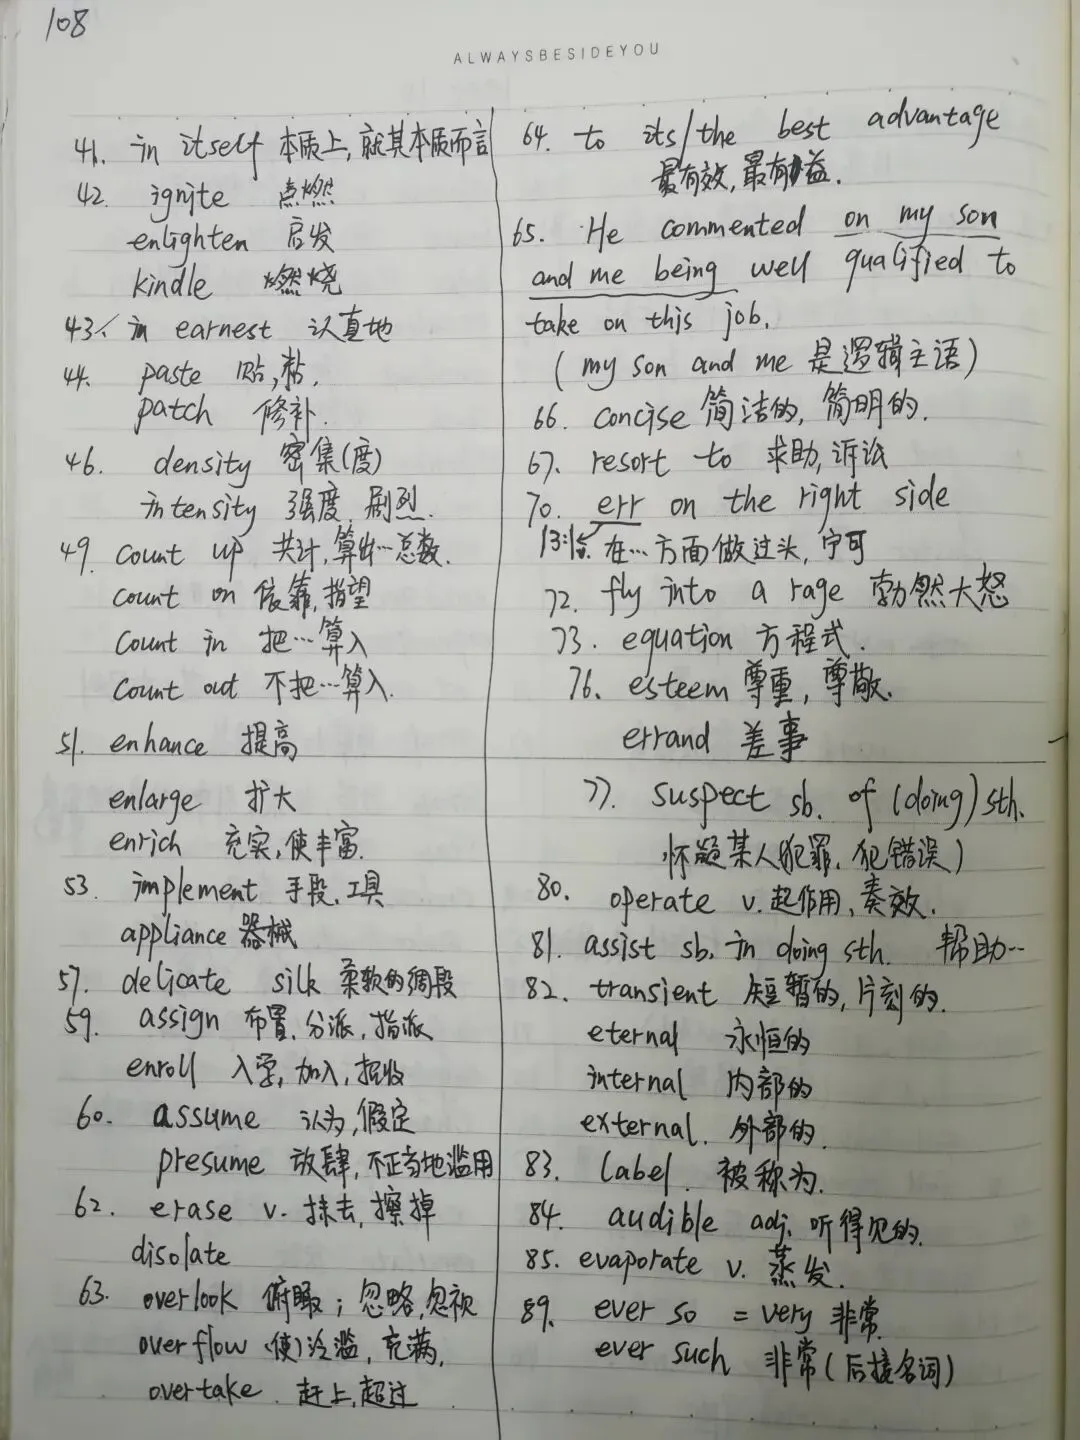 108
ALWAYSBESIDEYOU
41. in itself 本质上,就其本质而言
42. ignite 点燃
enlighten 启发
kindle 燃烧
43. in earnest 认真地
44. paste 贴,粘.
patch 修补.
46. density 密集(度)
intensity 强度,剧烈.
49. count up 共计,算出…总数.
count on 依靠,指望
count in 把…算入
count out 不把…算入.
51. enhance 提高
enlarge 扩大
enrich 充实,使丰富.
53. implement 手段,工具
appliance 器械
57. delicate silk 柔软的绸段
59. assign 布置,分派,指派
enroll 入学,加入,招收
60. assume 认为,假定
presume 放肆,不正当地滥用
62. erase v. 抹去,擦掉
disolate
63. overlook 俯瞰;忽略,忽视
overflow (使)泛滥,充满,
overtake 赶上,超过
64. to its/the best advantage
最有效,最有益.
65. He commented on my son
and me being well qualified to
take on this job.
(my son and me 是逻辑主语)
66. concise 简洁的,简明的.
67. resort to 求助,诉讼
70. err on the right side
在…方面做过头,宁可
72. fly into a rage 勃然大怒
73. equation 方程式.
76. esteem 尊重,尊敬.
errand 差事
77. suspect sb. of (doing) sth.
怀疑某人犯罪,犯错误)
80. operate v. 起作用,奏效.
81. assist sb. in doing sth. 帮助…
82. transient 短暂的,片刻的.
eternal 永恒的
internal 内部的
external. 外部的.
83. label. 被称为.
84. audible adj. 听得见的.
85. evaporate v. 蒸发.
89. ever so = very 非常.
ever such 非常(后接名词)